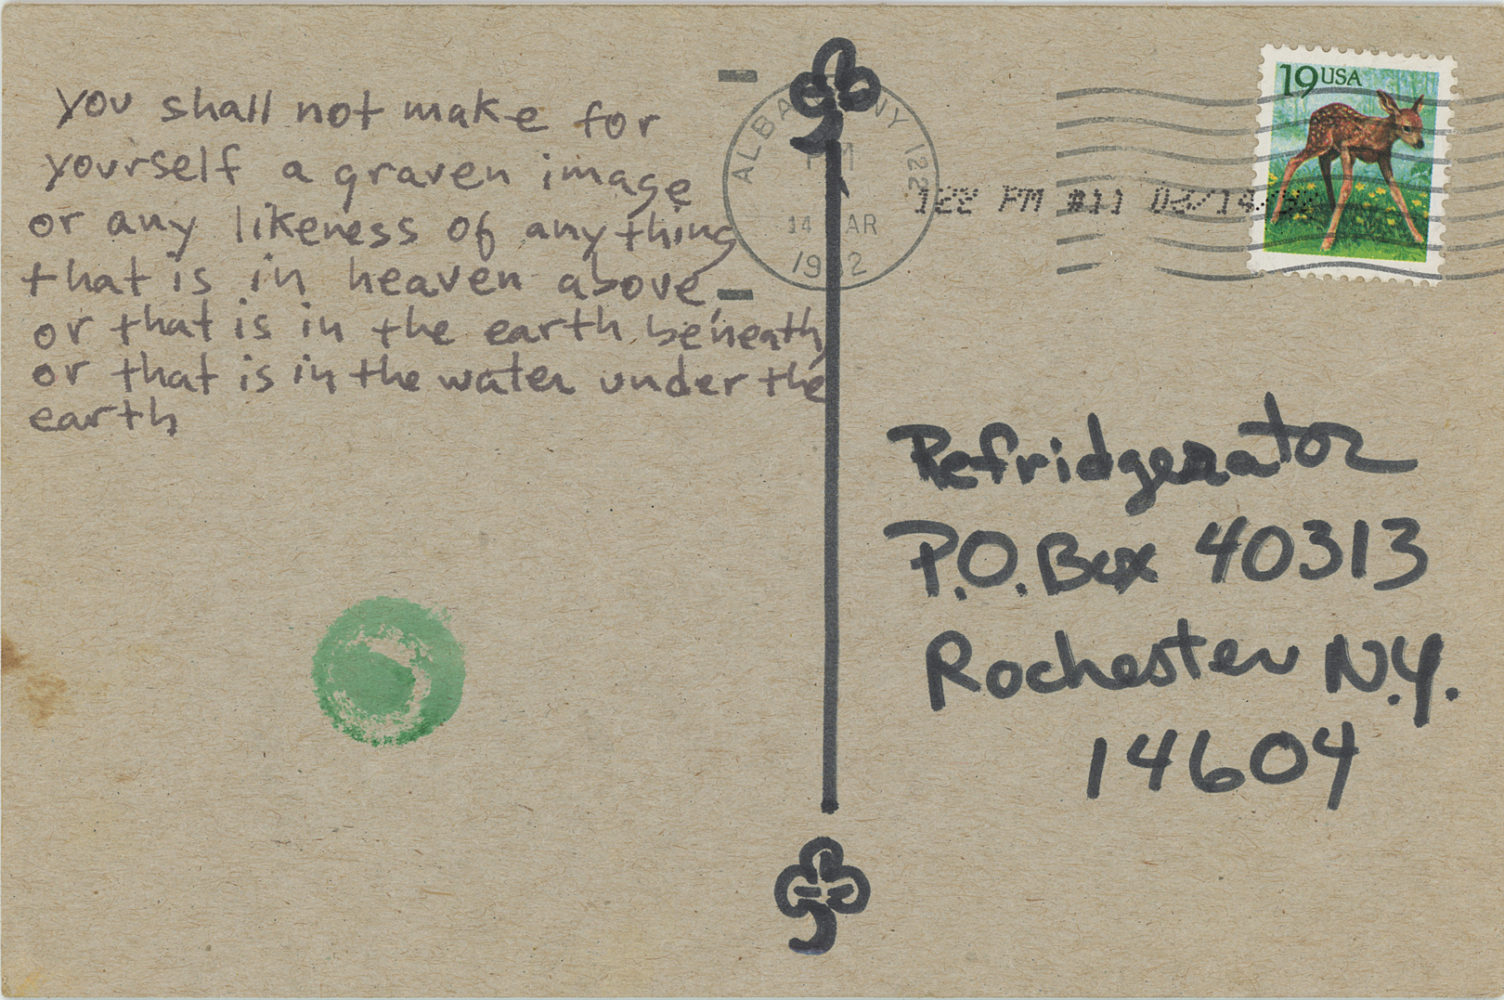 you shall not make for
yourself a graven image
or any likeness of anything
that is in heaven above,
or that is in the earth beneath,
or that is in the water under the
earth
ALBANY NY 122
PM
14 MAR
1992
122 PM #11 03/14/92
19 USA
Refridgerator
P.O. Box 40313
Rochester N.Y.
14604